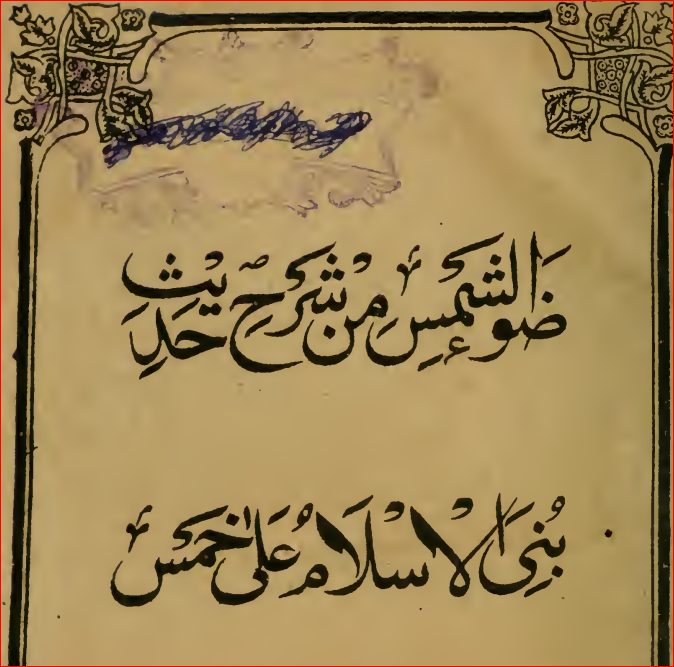 ضَوءُ الشَمسِ مِنْ شَرْحِ حَدِيْثِ
بُنِيَ الْاِسْلَامُ عَلٰى خَمْسٍ